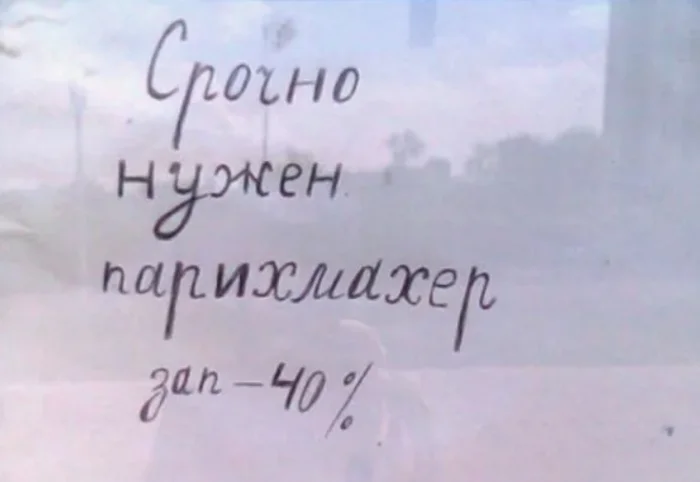 Срочно
нужен
парихмахер
зап - 40%